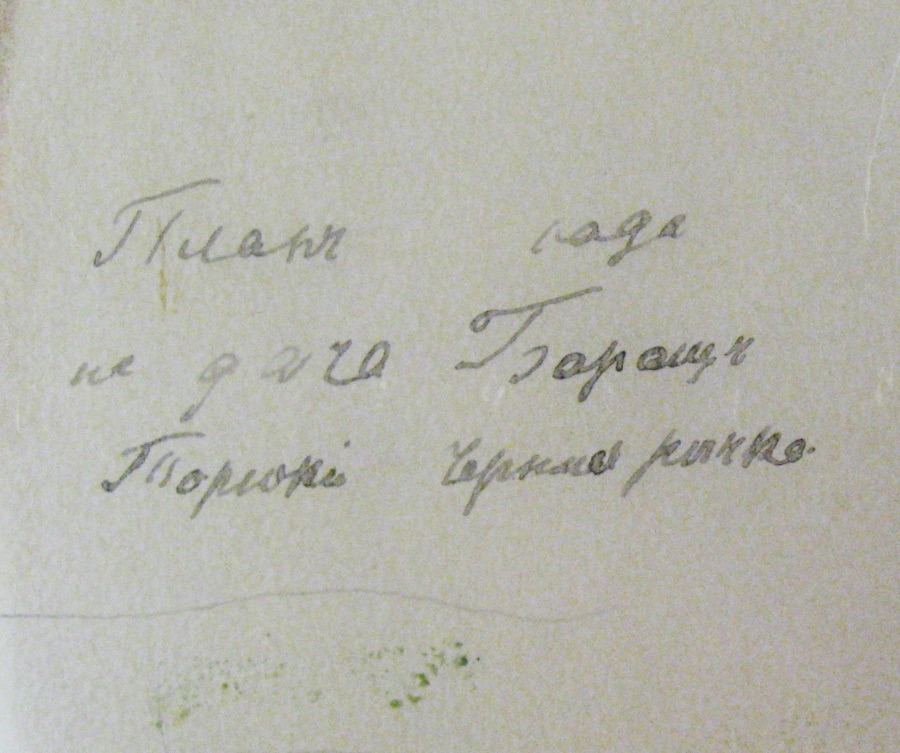 Планъ сада
на дача Баращъ
Торюкі Черная рычка.